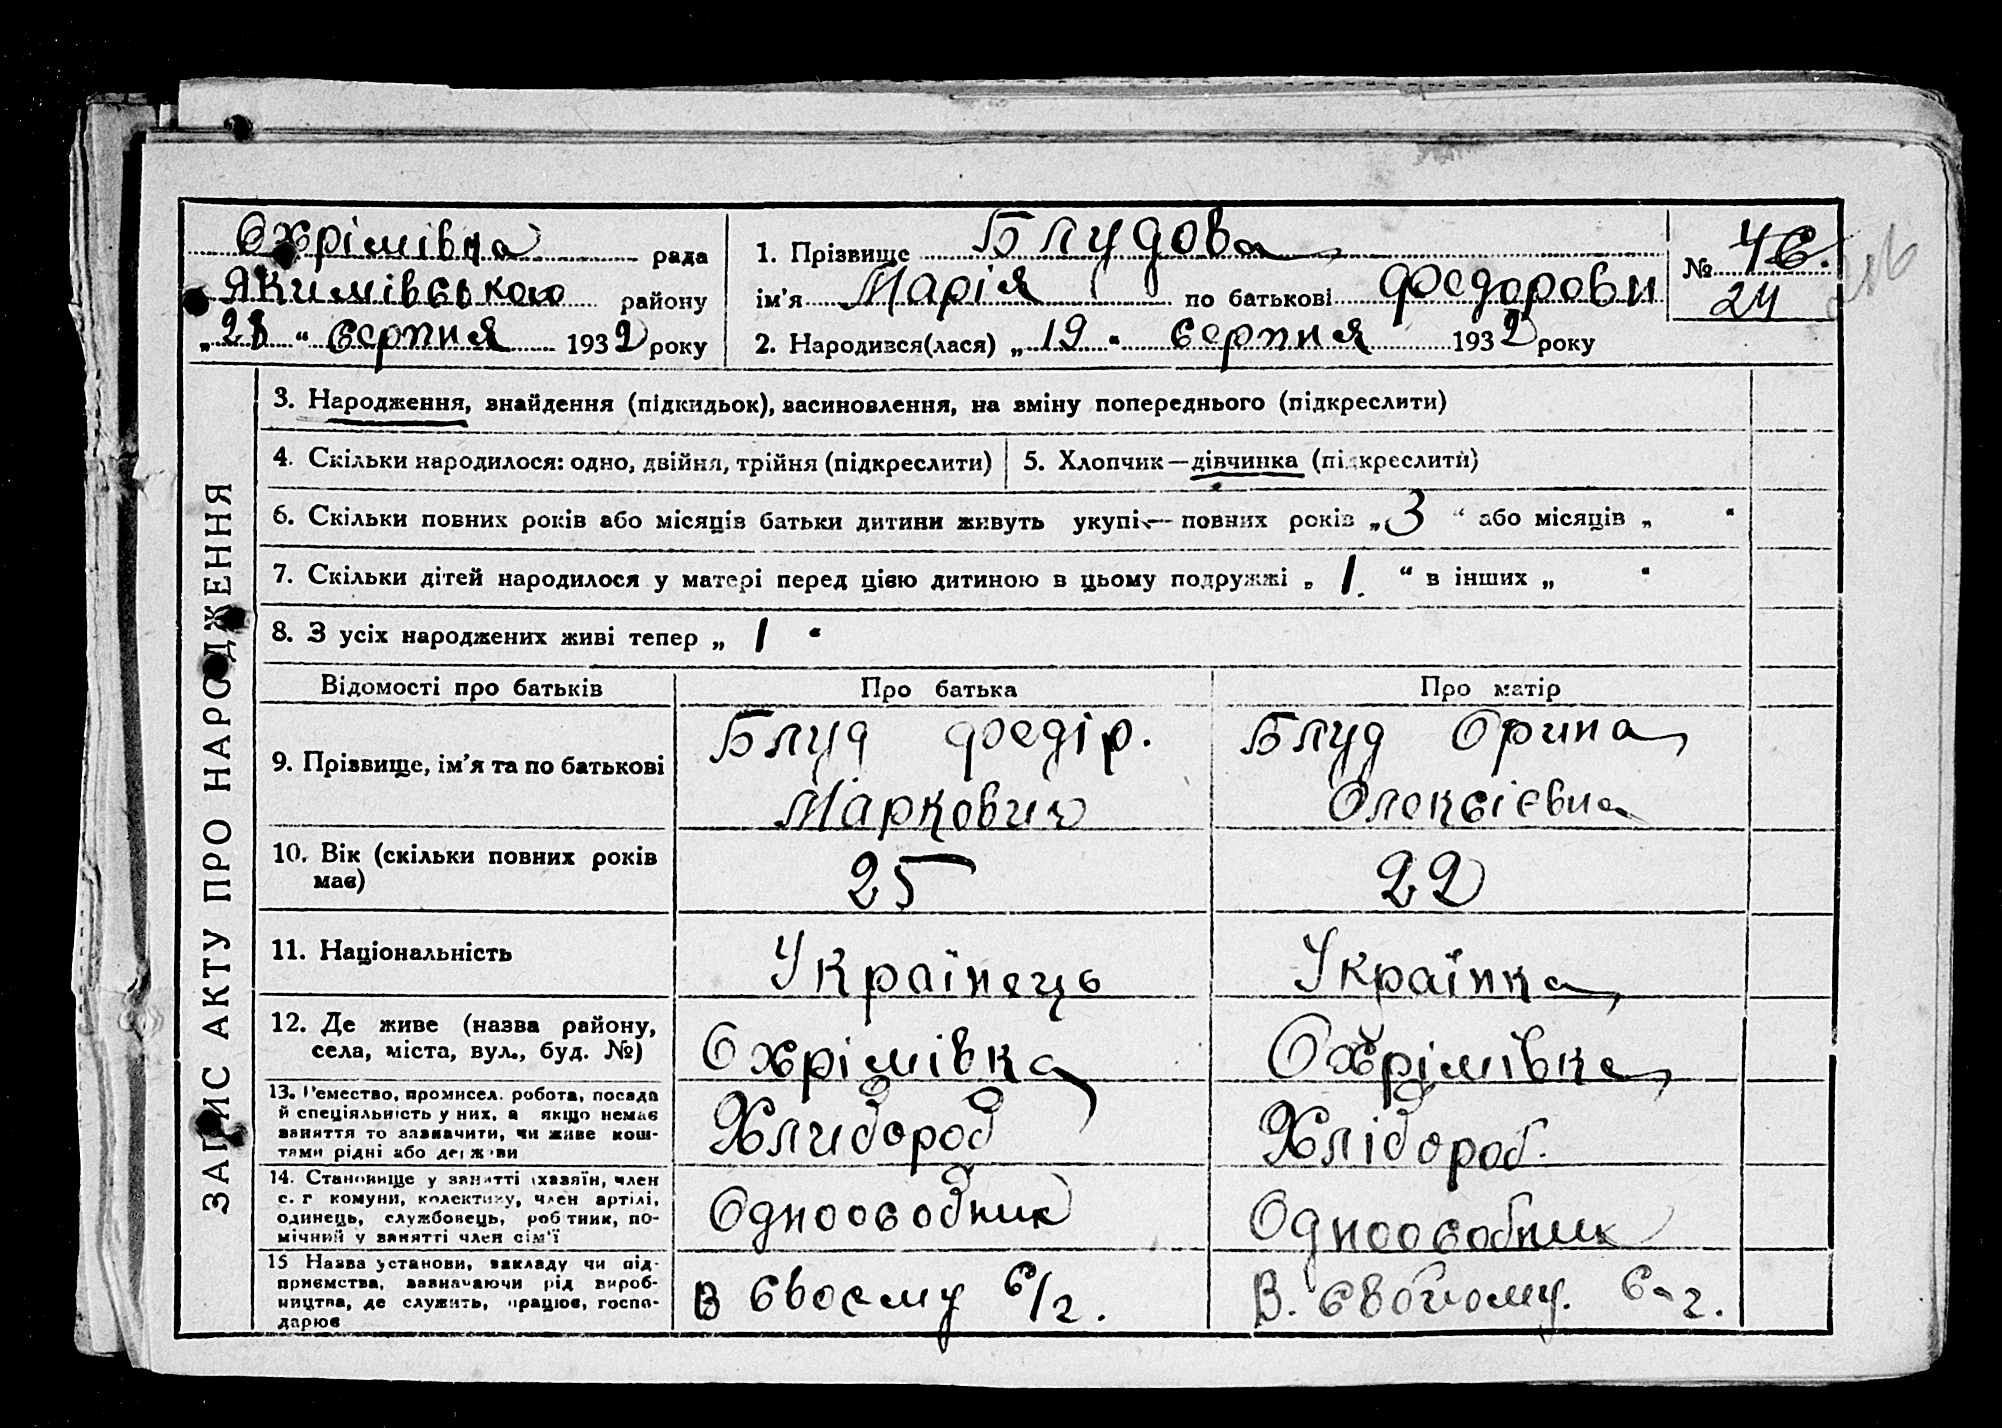 ЗАПИС АКТУ ПРО НАРОДЖЕННЯ
Охрімівна рада
Якимівською району
„28“ серпня 1932 року
1. Прізвище Блудова
ім'я Марія по батькові Федорови
2. Народився(лася) „19“ серпня 1932 року
№ 46.
24
3. Народження, знайдення (підкидьок), васиновлення, на зміну попереднього (підкреслити)
4. Скільки народилося: одно, двійня, трійня (підкреслити)
5. Хлопчик—дівчинка (підкреслити)
6. Скільки повних років або місяців батьки дитини живуть укупі — повних років „3“ або місяців „ “
7. Скільки дітей народилося у матері перед цією дитиною в цьому подружжі „1.“ в інших „ “
8. З усіх народжених живі тепер „1“
Відомості про батьків
Про батька
Про матір
9. Прізвище, ім'я та по батькові
Блуд Федір.
Маркович
Блуд Орина
Олексієвна
10. Вік (скільки повних років
має)
25
22
11. Національність
Українець
Українка
12. Де живе (назва району,
села, міста, вул., буд. №)
Охрімівка
Охрімівка
13. Ремество, промисел. робота, посада
й спеціяльність у них, а якщо немає
заняття то зазначити, чи живе кош-
тами рідні або держави
Хлибороб
Хлібороб.
14. Становище у занятті (хазяїн, член
с. г комуни, колективу, член артілі,
одинець, службовець, робітник, по-
мічний у занятті член сім'ї
Одноособник
Одноособник
15 Назва установи, закладу чи під-
приємства, зазначаючи рід вироб-
ництва, де служить, працює, госпо-
дарює
В своєму с/г.
В. свойому. с-г.